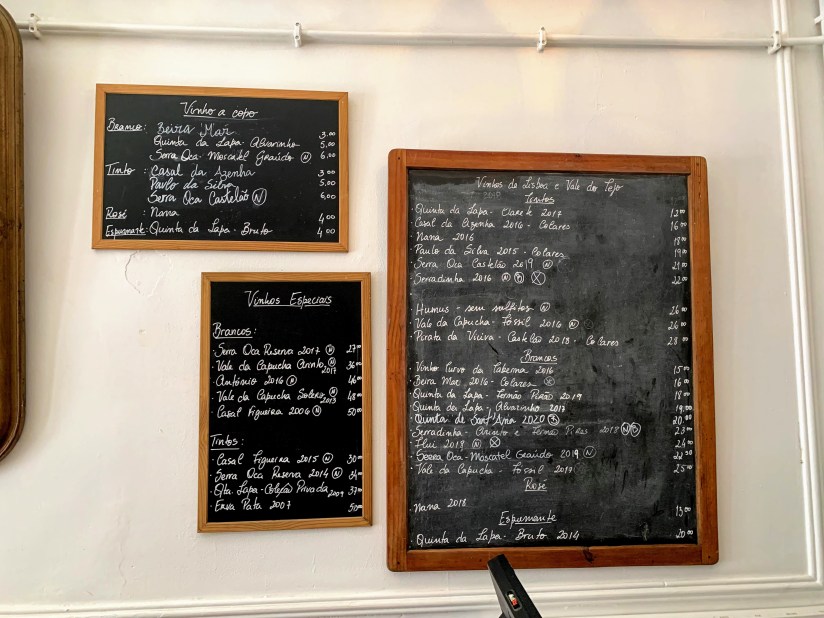 Vinho a copo
Branco: Beira Mar 3.00
Quinta da Lapa Alvarinho 5.00
Serra Oca Moscatel Graúdo (N) 6,00
Tinto: Casal da Azenha 3 00
Paulo da Silva 5,00
Serra Oca Castelão (N) 6,00
Rosé: Nana 4 00
Espumante: Quinta da Lapa - Bruto 4,00
Vinhos Especiais
Brancos:
Serra Oca Reserva 2017 (N) 27
Vale da Capucha Arinto (N) 2017 36
António 2016 46
Vale da Capucha Solera (N) 2013 48
Casal Figueira 2006 (N) 50
Tintos:
Casal Figueira 2015 (N) 30
Serra Oca Reserva 2014 (N) 34
Qta. Lapa - Coleção Privada 2009 37
Erva Pata 2007 50
Vinhos de Lisboa e Vale do Tejo
Tintos
Quinta da Lapa - Clarete 2017 12 00
Casal da Azenha 2016 - Colares 16
Nana 2016 18 00
Paulo da Silva 2015 - Colares 19 00
Serra Oca Castelão 2019 (N) 21 00
Serradinha 2016 (N) (B) (X) 22 00
Humus - sem sulfitos (N) 26 00
Vale da Capucha - Fóssil 2016 (N) 26 00
Pirata da Viúva - Castelão 2018 - Colares 28 00
Brancos
Vinho Turvo da Taberna 2016 15 00
Beira Mar 2016 - Colares 16 00
Quinta da Lapa - Fernão Pirão 2019 18 00
Quinta da Lapa - Alvarinho 2017 19,00
Quinta de Sant'Ana 2020 (B) 20.00
Serradinha - Arinto e Fernão Pires 2018 (N) (B) 23 00
Flui 2018 (N) (X) 24 00
Serra Oca - Moscatel Graúdo 2019 (N) 22 50
Vale da Capucha - Fóssil 2019 25 00
Rosé
Nana 2018 13 00
Espumante
Quinta da Lapa - Bruto 2014 20 00